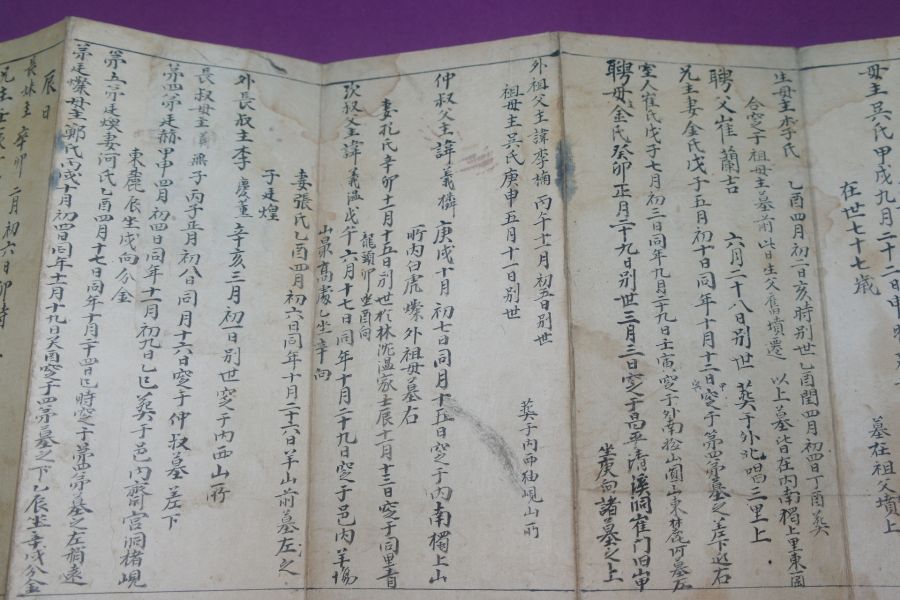 母主吳氏甲戌九月二十二日申時
在世七十七歲
墓在祖父墳上
生母主李氏 乙酉四月初二日亥時別世 乙酉閏四月初四日丁酉葬
合窆于祖母主墓前 此日生父舊墳遷 以上墓皆在內南獨上里東一岡
聘父崔蘭吉 六月二十八日別世 葬于外北四三里上
兄主妻金氏戊子五月初十日同年十月十二日窆于第四弟墓之左下近右
室人崔氏戊子七月初三日同年九月二十九日壬寅窆于外南松山圓山東麓
聘母金氏癸卯正月二十九日別世三月三日窆于昌平清溪洞崔門旧山甲
坐庚向諸墓之上
外祖父主諱李 丙午十一月初五日別世 葬于內西紬峴山所
祖母主吳氏庚申五月十一日別世
仲叔父主諱義橉 庚戌十月初七日同月十五日窆于內南獨上山
所內白虎 外祖母墓右
妻孔氏辛卯十一月十五日別世於林 溫家壬辰十月十三日窆于同里青
龍頭卯坐酉向
次叔父主諱義溫 戊午六月十七日同年十月二十九日窆于邑內羊場
山最高處乙坐辛向
妻張氏乙酉四月初六日同年十月二十六日羊山前墓左之
子廷煌
外長叔主李慶董 辛亥三月初一日別世窆于內西山所
長叔母主 無子丙子正月初八日同月十六日窆于仲叔墓左下
第四弟廷赫 甲申四月初四日同年十一月初九日乙巳葬于邑內齋宮洞楮峴
東麓辰坐戌向分金
第五弟廷煥妻河氏乙酉四月十七日同年十月二十四日巳時窆于第四弟墓之左稍遠
弟廷燦母主鄭氏丙戌十月初四日同年十一月十九日癸酉窆于四弟墓之下乙辰坐辛戌分金
辰日
長妹主 辛卯二月初六日卯時